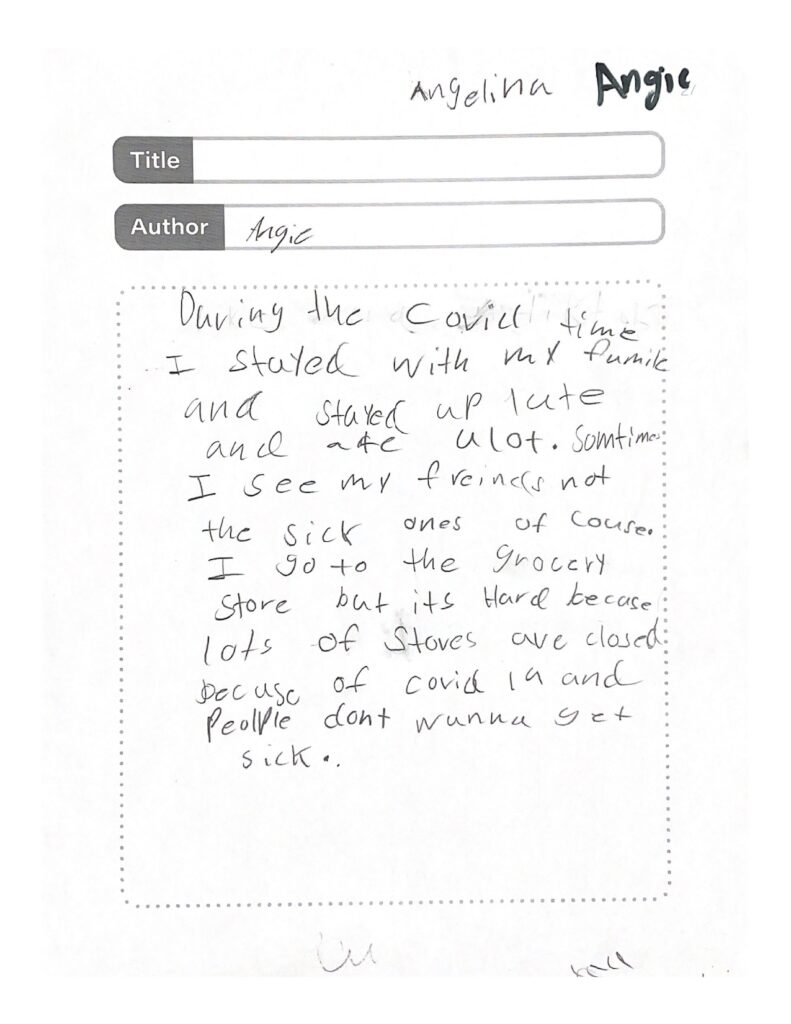 Angelina Angie
Title
Author Angie
During the Covid time
I stayed with my famile
and stayed up late
and ate alot. Somtimes
I see my freinds not
the sick ones of couse.
I go to the grocery
store but its Hard becase
lots of stores are closed
becuse of covid 19 and
Peolple dont wanna get
sick..